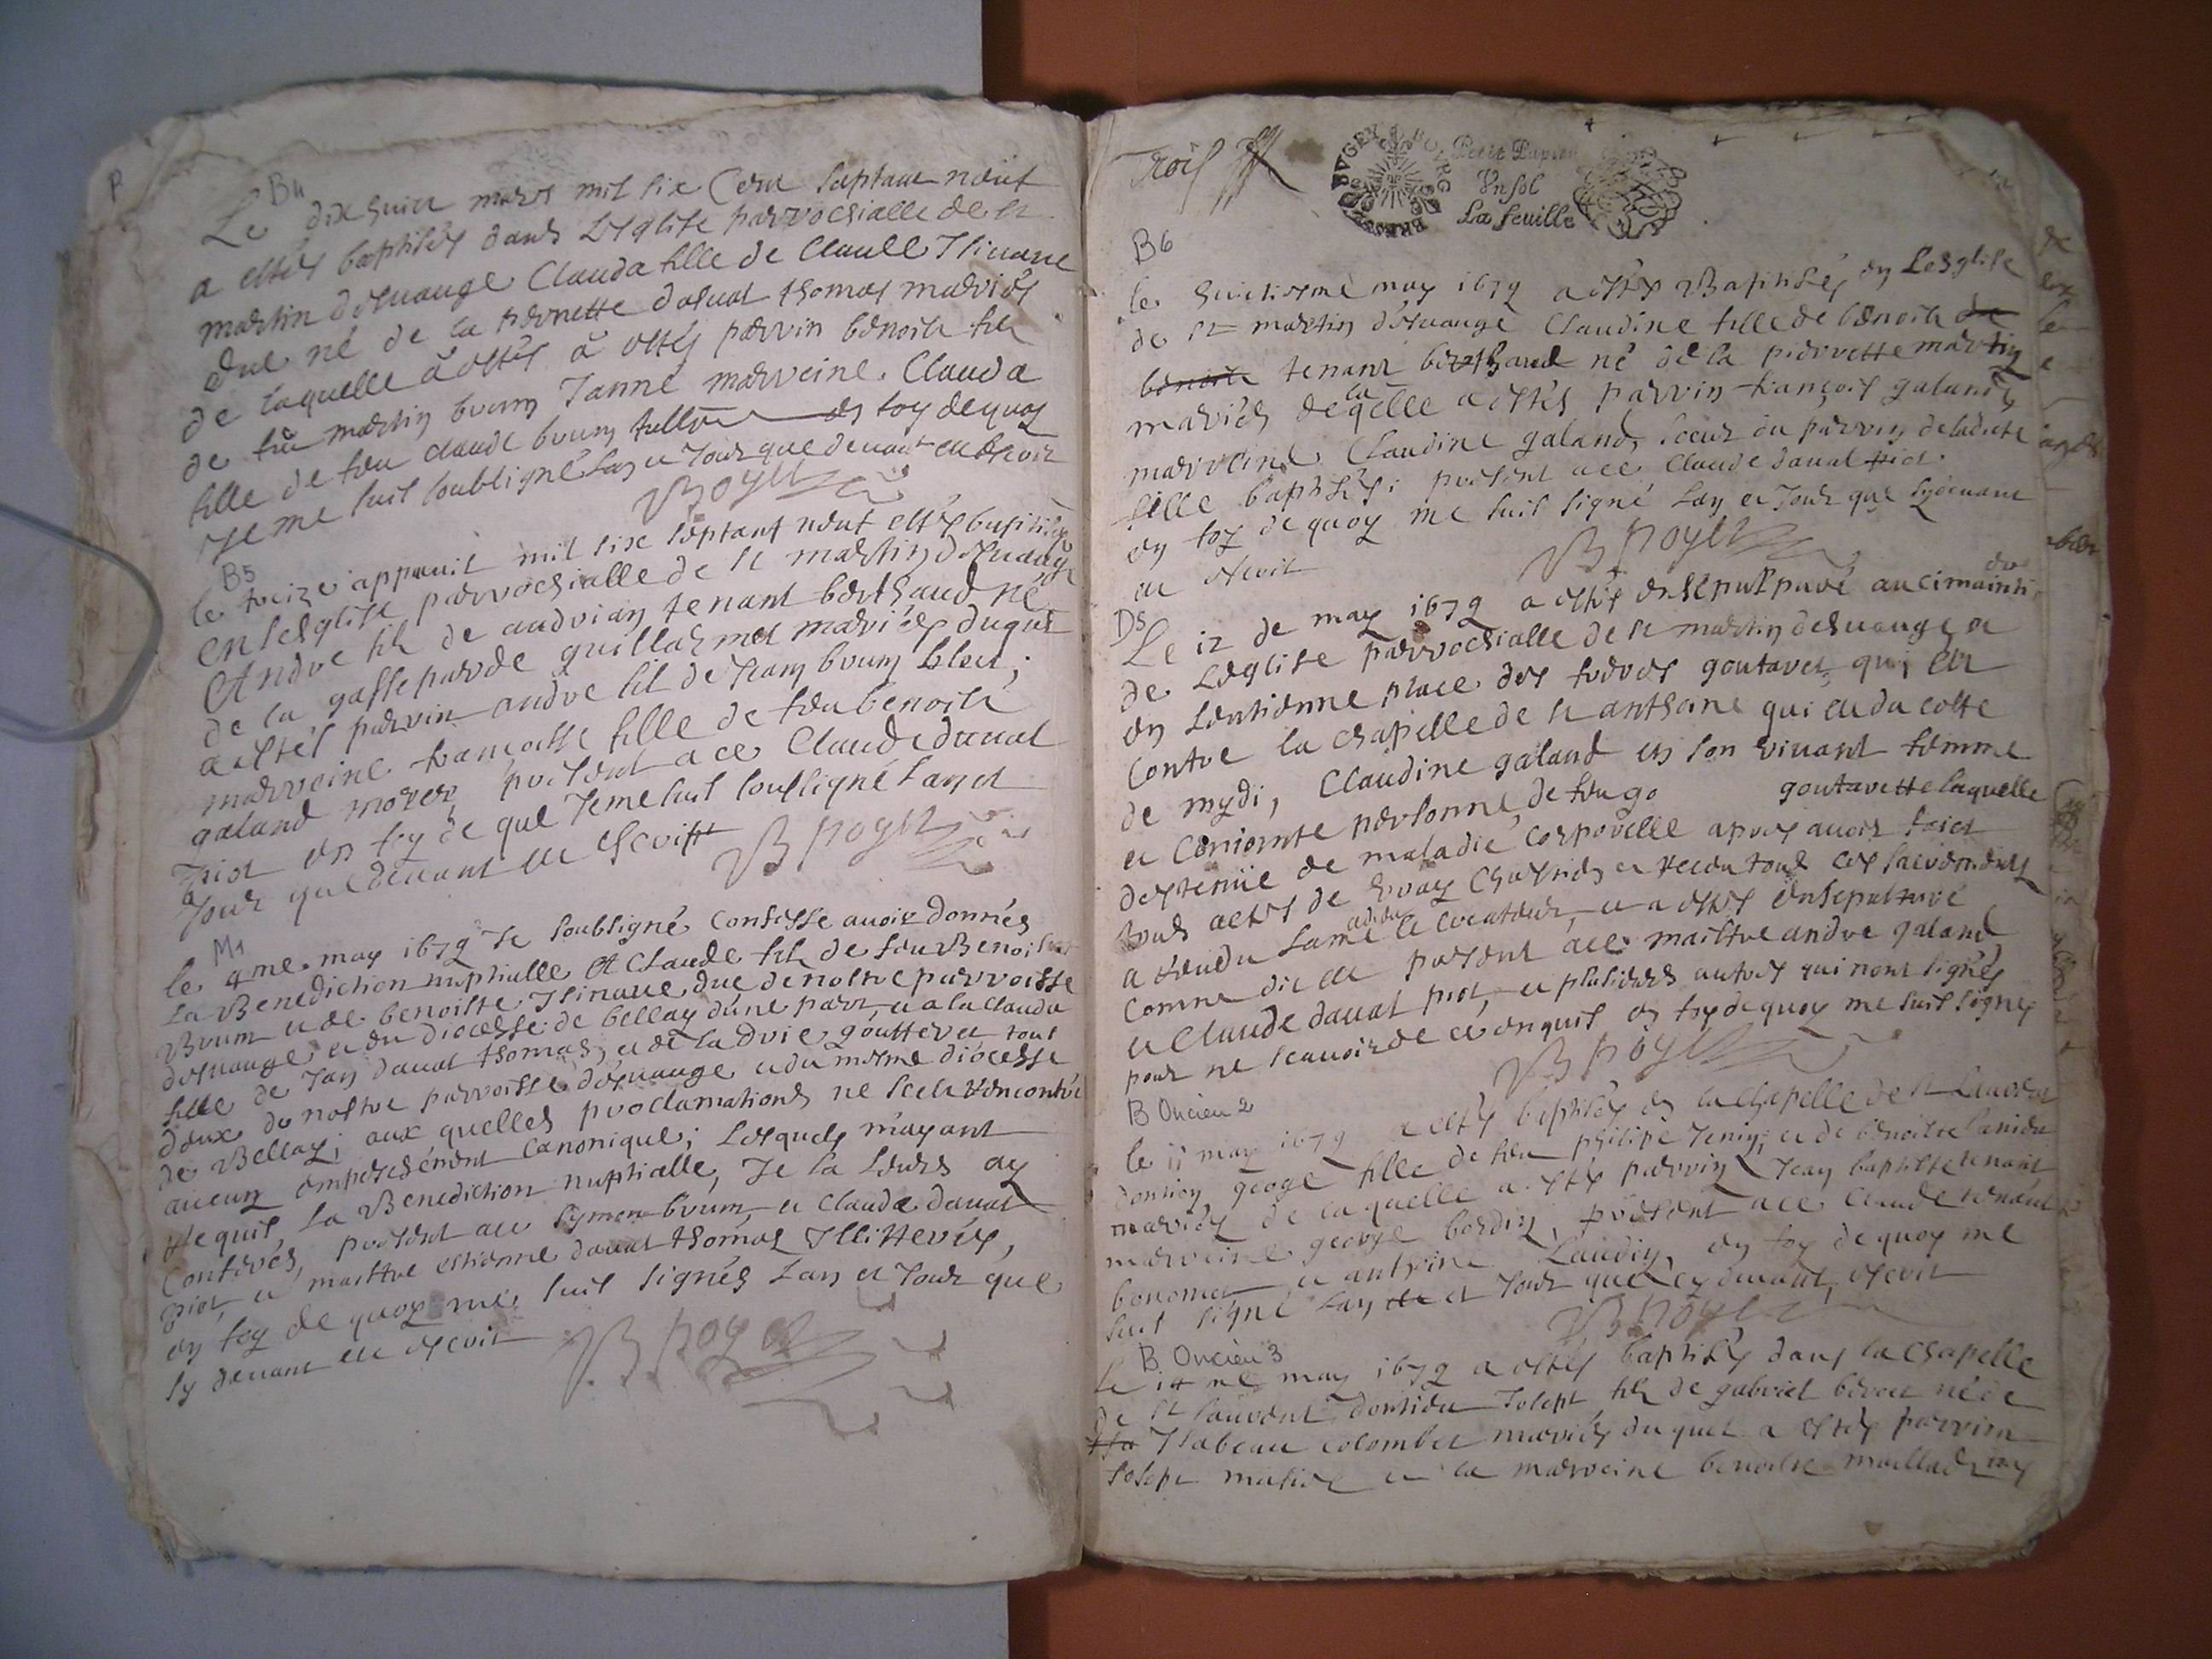 B4
Le dix huict mars mil six Cent septante neuf
a estés baptisés dans L'esglise parrochialle de st
martin d'esuange Clauda fille de Claude
due né de la pernette dauat thomas mariés
de laquelle à estés à estés parrin benoist fils
de feu martin brum Janne marreine Clauda
fille de feu claude brum en foy dequoy
Je me suis soubsigné Lan et Jour que deuant et escrit
B poyet
B5
le treize appuril mil six septant neuf estés baptisés
en lesglise parrochialle de st martin d'esuange
Andre fils de andrian tenant berthaud né
de la gasparde guillarmet mariés duquel
a estés parrin andre fils de Jean brum
marreine françoisse fille de feu benoist
galand present a ce Claude dauat
piot en foy de que Jeme suis soubsigné Lan et
Jour que deuant et escript B poyet
M1
le 4me may 1679 Je soubsigné Confesse auoir donnés
La Benediction nuptialle A Claude fils de feu Benoist
Brum et de benoiste due de nostre parroisse
desuange et du diocesse de bellay d'une part, et a la clauda
fille de Jan dauat thomas, et de la goutteret tout
deux de nostre parroisse d'esuange et du mesme diocesse
de Bellay; aux quelles proclamations ne scest rencontré
aucun empeschement Canonique; Lesquels m'ayant
requis la Benediction nuptialle, Je la Leurs ay
Conferés, present a ce symon brum, et Claude dauat
piot, et maistre estienne dauat thomas Illitterés,
en foy de quoy me suis signés Lan et Jour que
sy deuant et escrit B poyet
Trois
BVGEY
Petit Papier
Vn sol
La feuille
B6
le huictiesme may 1679 a estés Baptisés en Lesglise
de st martin d'esuange Claudine fille de benoist de
benoiste tenant berthaud né de la pierrette martin
mariés de la qelle a estés parrin françois galand
marreine Claudine galand soeur du parrin de ladicte
fille baptisés; present a ce Claude dauat piot
en foy de quoy me suis signé Lan et Jour que sydeuant
et escrit B poyet
D5
Le 12 de may 1679 a estés ensepulturé au cimaintiere
de Leglise parrochialle de st martin desuange et
en Lentienne place des freres goutaret, qui est
contre la chapelle de st anthoine qui est du costé
de mydi, Claudine galand en son viuant femme
et coniointe personne de hugo goutarette laquelle
destenüe de maladie corporelle apres auoir faict
touts actes de vray Chrestien et receu tous ces sacrements
a rendu Lame a dieu le createur, et a estés ensepulturé
comme dit est present a ce maistre andre galand
et Claude dauat piot, et plusieurs autres qui nont signés
pour ne scauoir de ce enquis en foy de quoy me suis signé
B poyet
B Oncieu 2
le 11 may 1679 a estés baptisés en la chapelle de st Laurent
donsieu george fille de feu philipe Jenin; et de benoitte
mariés de laquelle a estés parrin Jean baptiste tenant
marreine george bordin, present a ce Claude tenant
bonomet et anthoine Laudin, en foy de quoy me
suis signé Lan et Jour que cy deuant, escrit
B poyet
B Oncieu 3
Le 14 me may 1679 a estés baptisés dans la chapelle
de st laurent donsieu Josept fils de gabriel né de
Isabeau colombet mariés duquel a estés parrin
Josept et la marreine benoitte